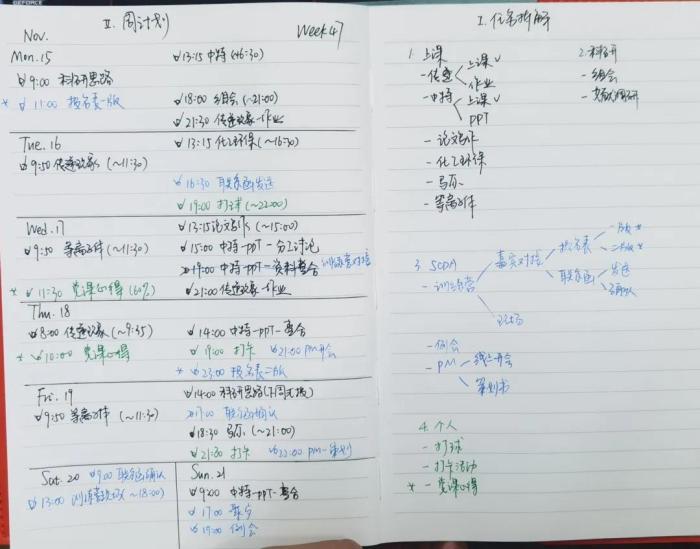 GEFORCE
Nov.
II. 周计划
Week 47
Mon. 15
13:15 中特 (~16:30)
9:00 科研思路
* 11:00 报名表一版
18:00 组会 (~21:00)
21:30 传递 作业
Tue. 16
13:15 化工环保 (~16:30)
9:50 传递 (~11:30)
16:30 联系函发送
19:00 打球 (~22:00)
Wed. 17
13:15 论文写作 (~15:00)
9:50 (~11:30)
15:00 中特-PPT-分工讨论
19:00 中特-PPT-资料整合
* 11:30 党课心得 (60%)
21:00 传递 作业
Thu. 18
8:00 传递 (~9:35)
14:00 中特-PPT-整合
* 10:00 党课心得
19:00 打卡 21:00 pm开会
* 23:00 报名表二版
Fri. 19
14:00 科研思路 (下周汇报)
9:50 (~11:30)
17:00 联系函确认
18:30 马原 (~21:00)
21:30 打卡 22:00 pm-策划
Sat. 20 9:00 联系函确认
Sun. 21
13:00 训练营现场 (~18:00)
9:00 中特-PPT-整合
17:00
19:00 例会
I. 任务拆解
1. 上课
2. 科研
- 传递 上课 ✓
作业
- 组会
- 中特 上课 ✓
PPT
- 文献调研
- 论文写作
- 化工环保
- 马原
3. SODA
- 训练营
报名表 一版 *
二版 *
联系函 发送
确认
现场
- 例会
- PM 线上开会
策划书
4. 个人
- 打球
- 打卡活动
* - 党课心得